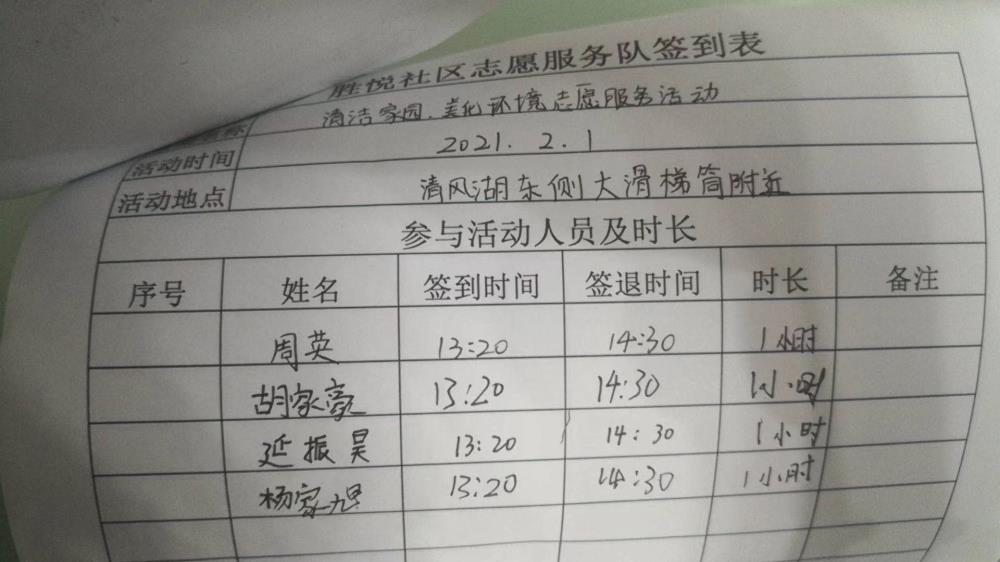 胜悦社区志愿服务队签到表
称 清洁家园、美化环境志愿服务活动
活动时间 2021. 2. 1
活动地点 清风湖东侧大滑梯筒附近
参与活动人员及时长
序号 姓名 签到时间 签退时间 时长 备注
周英 13:20 14:30 1小时
胡家豪 13:20 14:30 1小时
延振昊 13:20 14:30 1小时
杨家旭 13:20 14:30 1小时